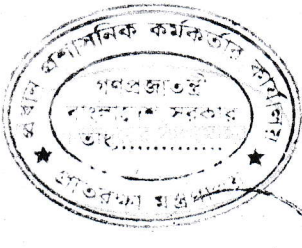 প্রধান প্রশাসনিক কর্মকর্তার কার্যালয়
গণপ্রজাতন্ত্রী
বাংলাদেশ সরকার
তাং..............
প্রতিরক্ষা মন্ত্রণালয়